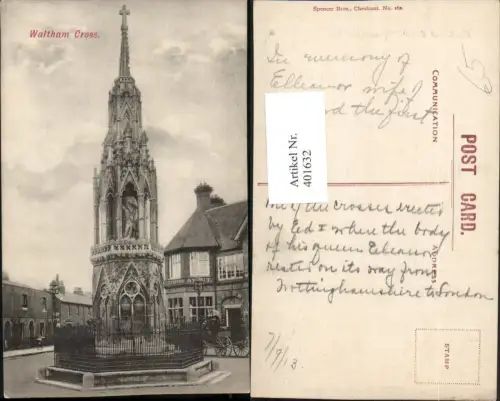 Waltham Cross.
Spencer Bros., Cheshunt. No. 162
In memory of
Elleanor wife of
the first
COMMUNICATION
POST CARD.
ADDRESS
STAMP
Artikel Nr.
401632
of the crosses erected
by Ed I where the body
of his queen Eleanor
rested on its way from
Nottinghamshire to London
7/9/13
15